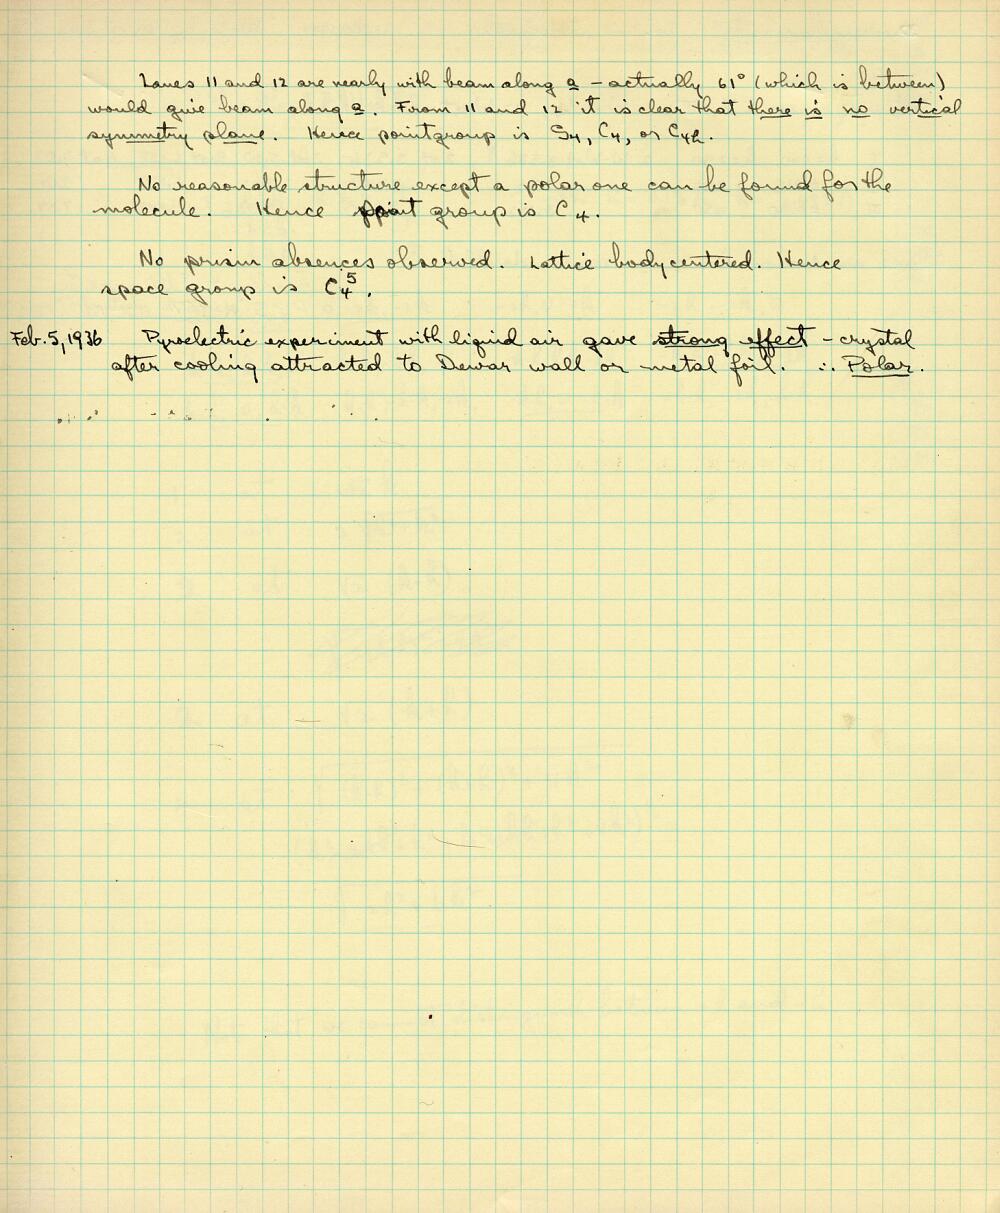 Laues 11 and 12 are nearly with beam along a – actually 61° (which is between)
would give beam along a. From 11 and 12 it is clear that there is no vertical
symmetry plane. Hence pointgroup is S4, C4, or C4h.
No reasonable structure except a polar one can be found for the
molecule. Hence point group is C4.
No prism absences observed. Lattice bodycentered. Hence
space group is C₄⁵.
Feb. 5, 1936 Pyroelectric experiment with liquid air gave strong effect – crystal
after cooling attracted to Dewar wall or metal foil. ∴ Polar.